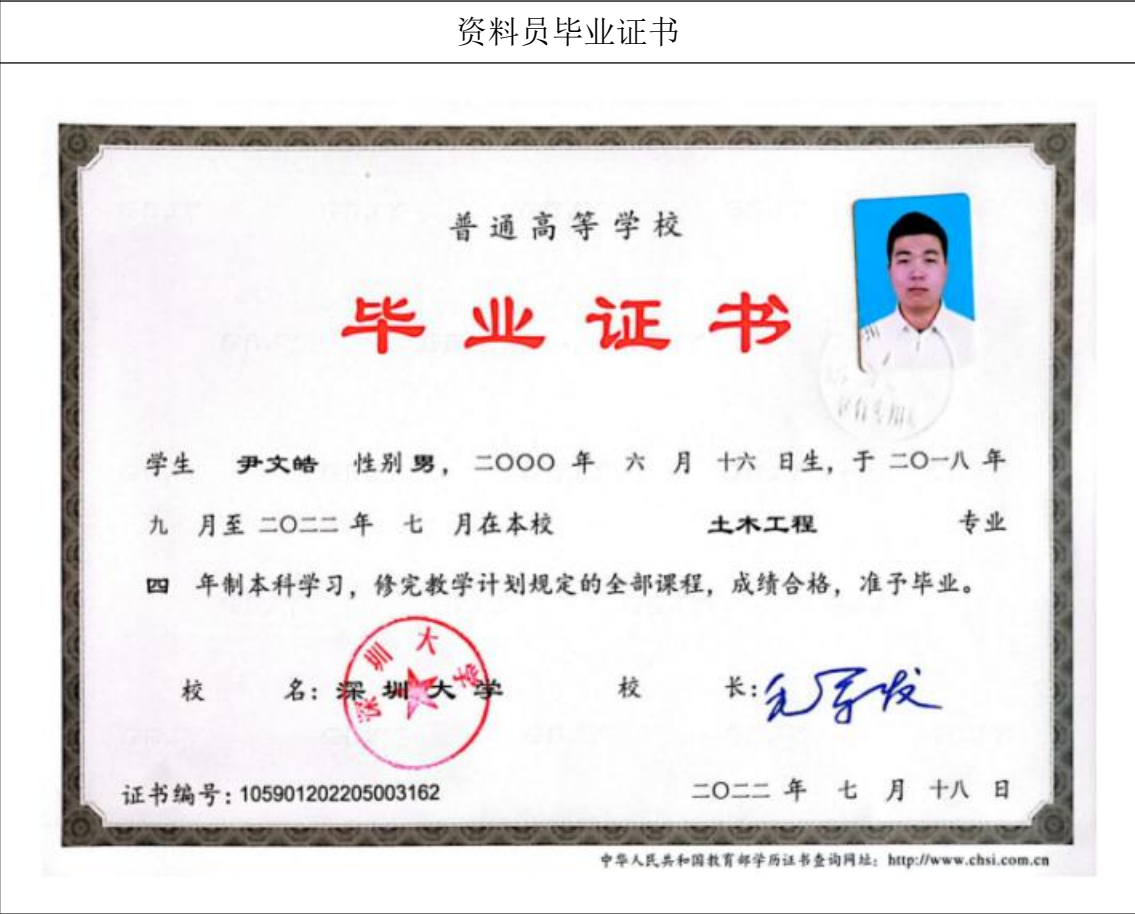 资料员毕业证书
普通高等学校
毕业证书
学生 尹文皓 性别 男，二〇〇〇 年 六 月 十六 日生，于 二〇一八 年
九 月至 二〇二二 年 七 月在本校 土木工程 专业
四 年制本科学习，修完教学计划规定的全部课程，成绩合格，准予毕业。
校 名：深圳大学
深圳大学
校 长：
证书编号：105901202205003162
二〇二二 年 七 月 十八 日
中华人民共和国教育部学历证书查询网址：http://www.chsi.com.cn